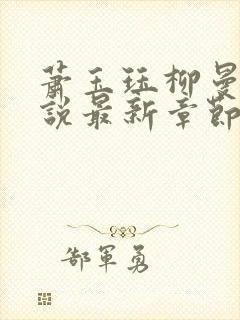 萧玉珏柳曼
说最新章節
郜軍勇